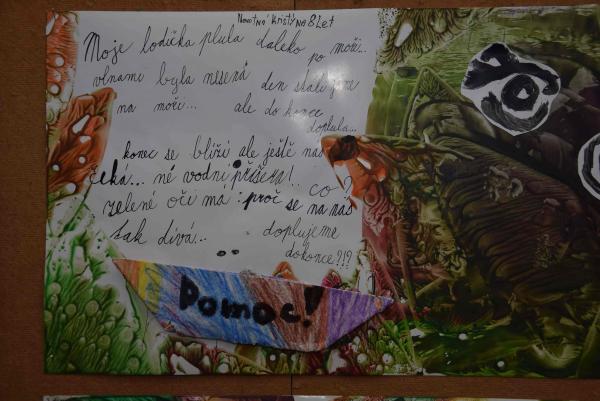 Novotná Kristýna 8 Let
Moje lodička plula daleko po moři...
vlnami byla nesená den stále jsme
na moři... ale do konce
doplula...
konec se blíží ale ještě nás
čeká... né vodní příšera!.. co?
zelené oči má proč se na nás
tak dívá.. doplujeme
dokonce?!?
Pomoc!